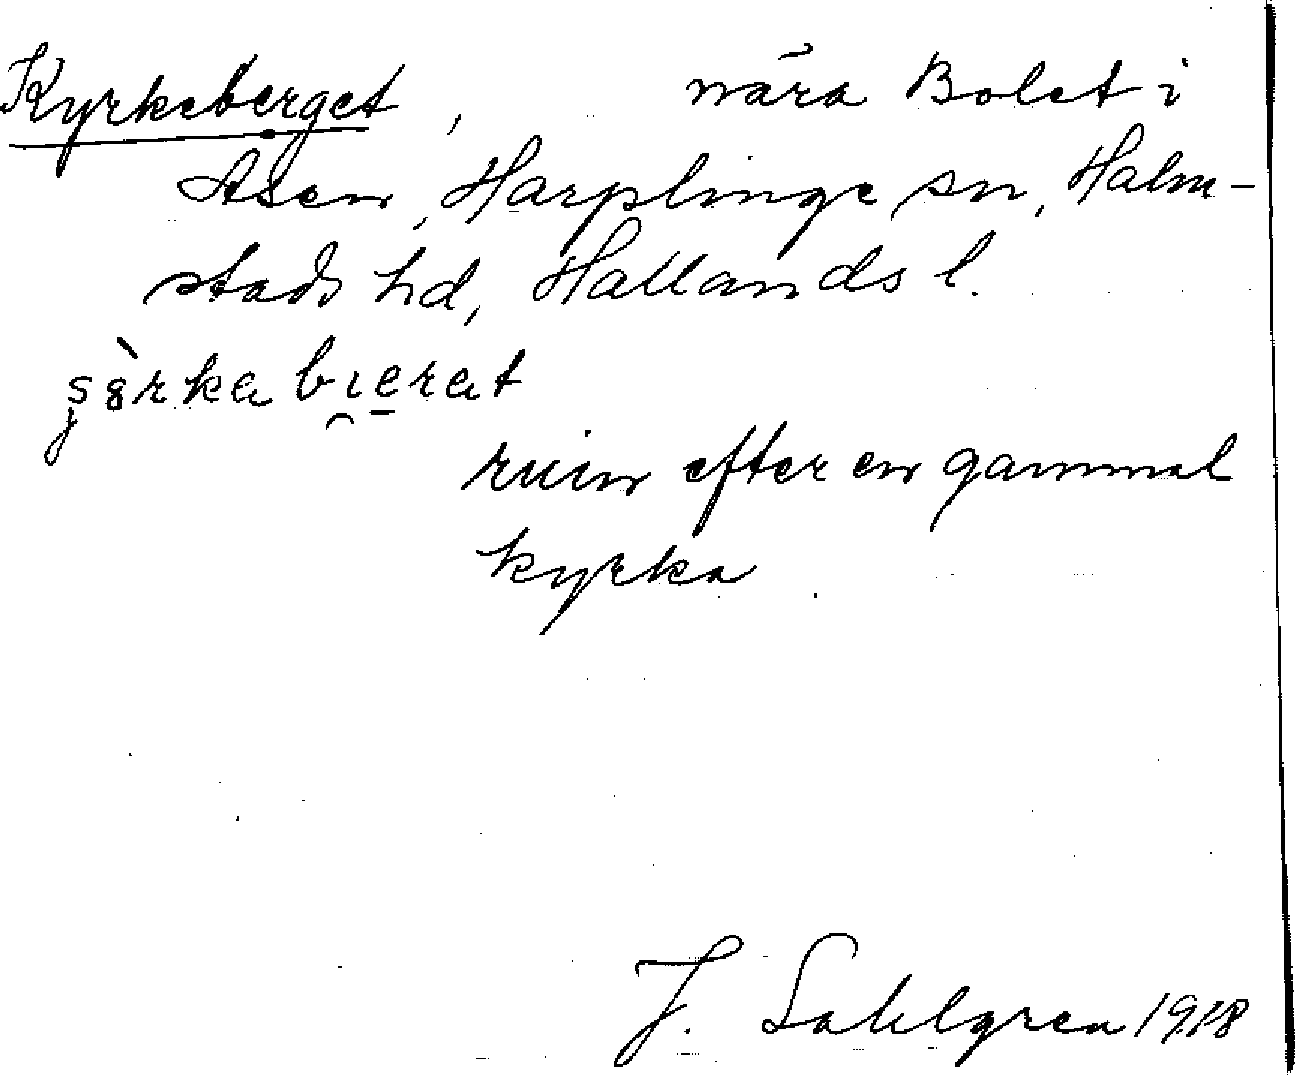 Kyrkeberget, nära Bolet i
Åsen, Harplinge sn, Halm-
stads hd, Hallands l.
ruin efter en gammal
kyrka
J. Sahlgren 1918